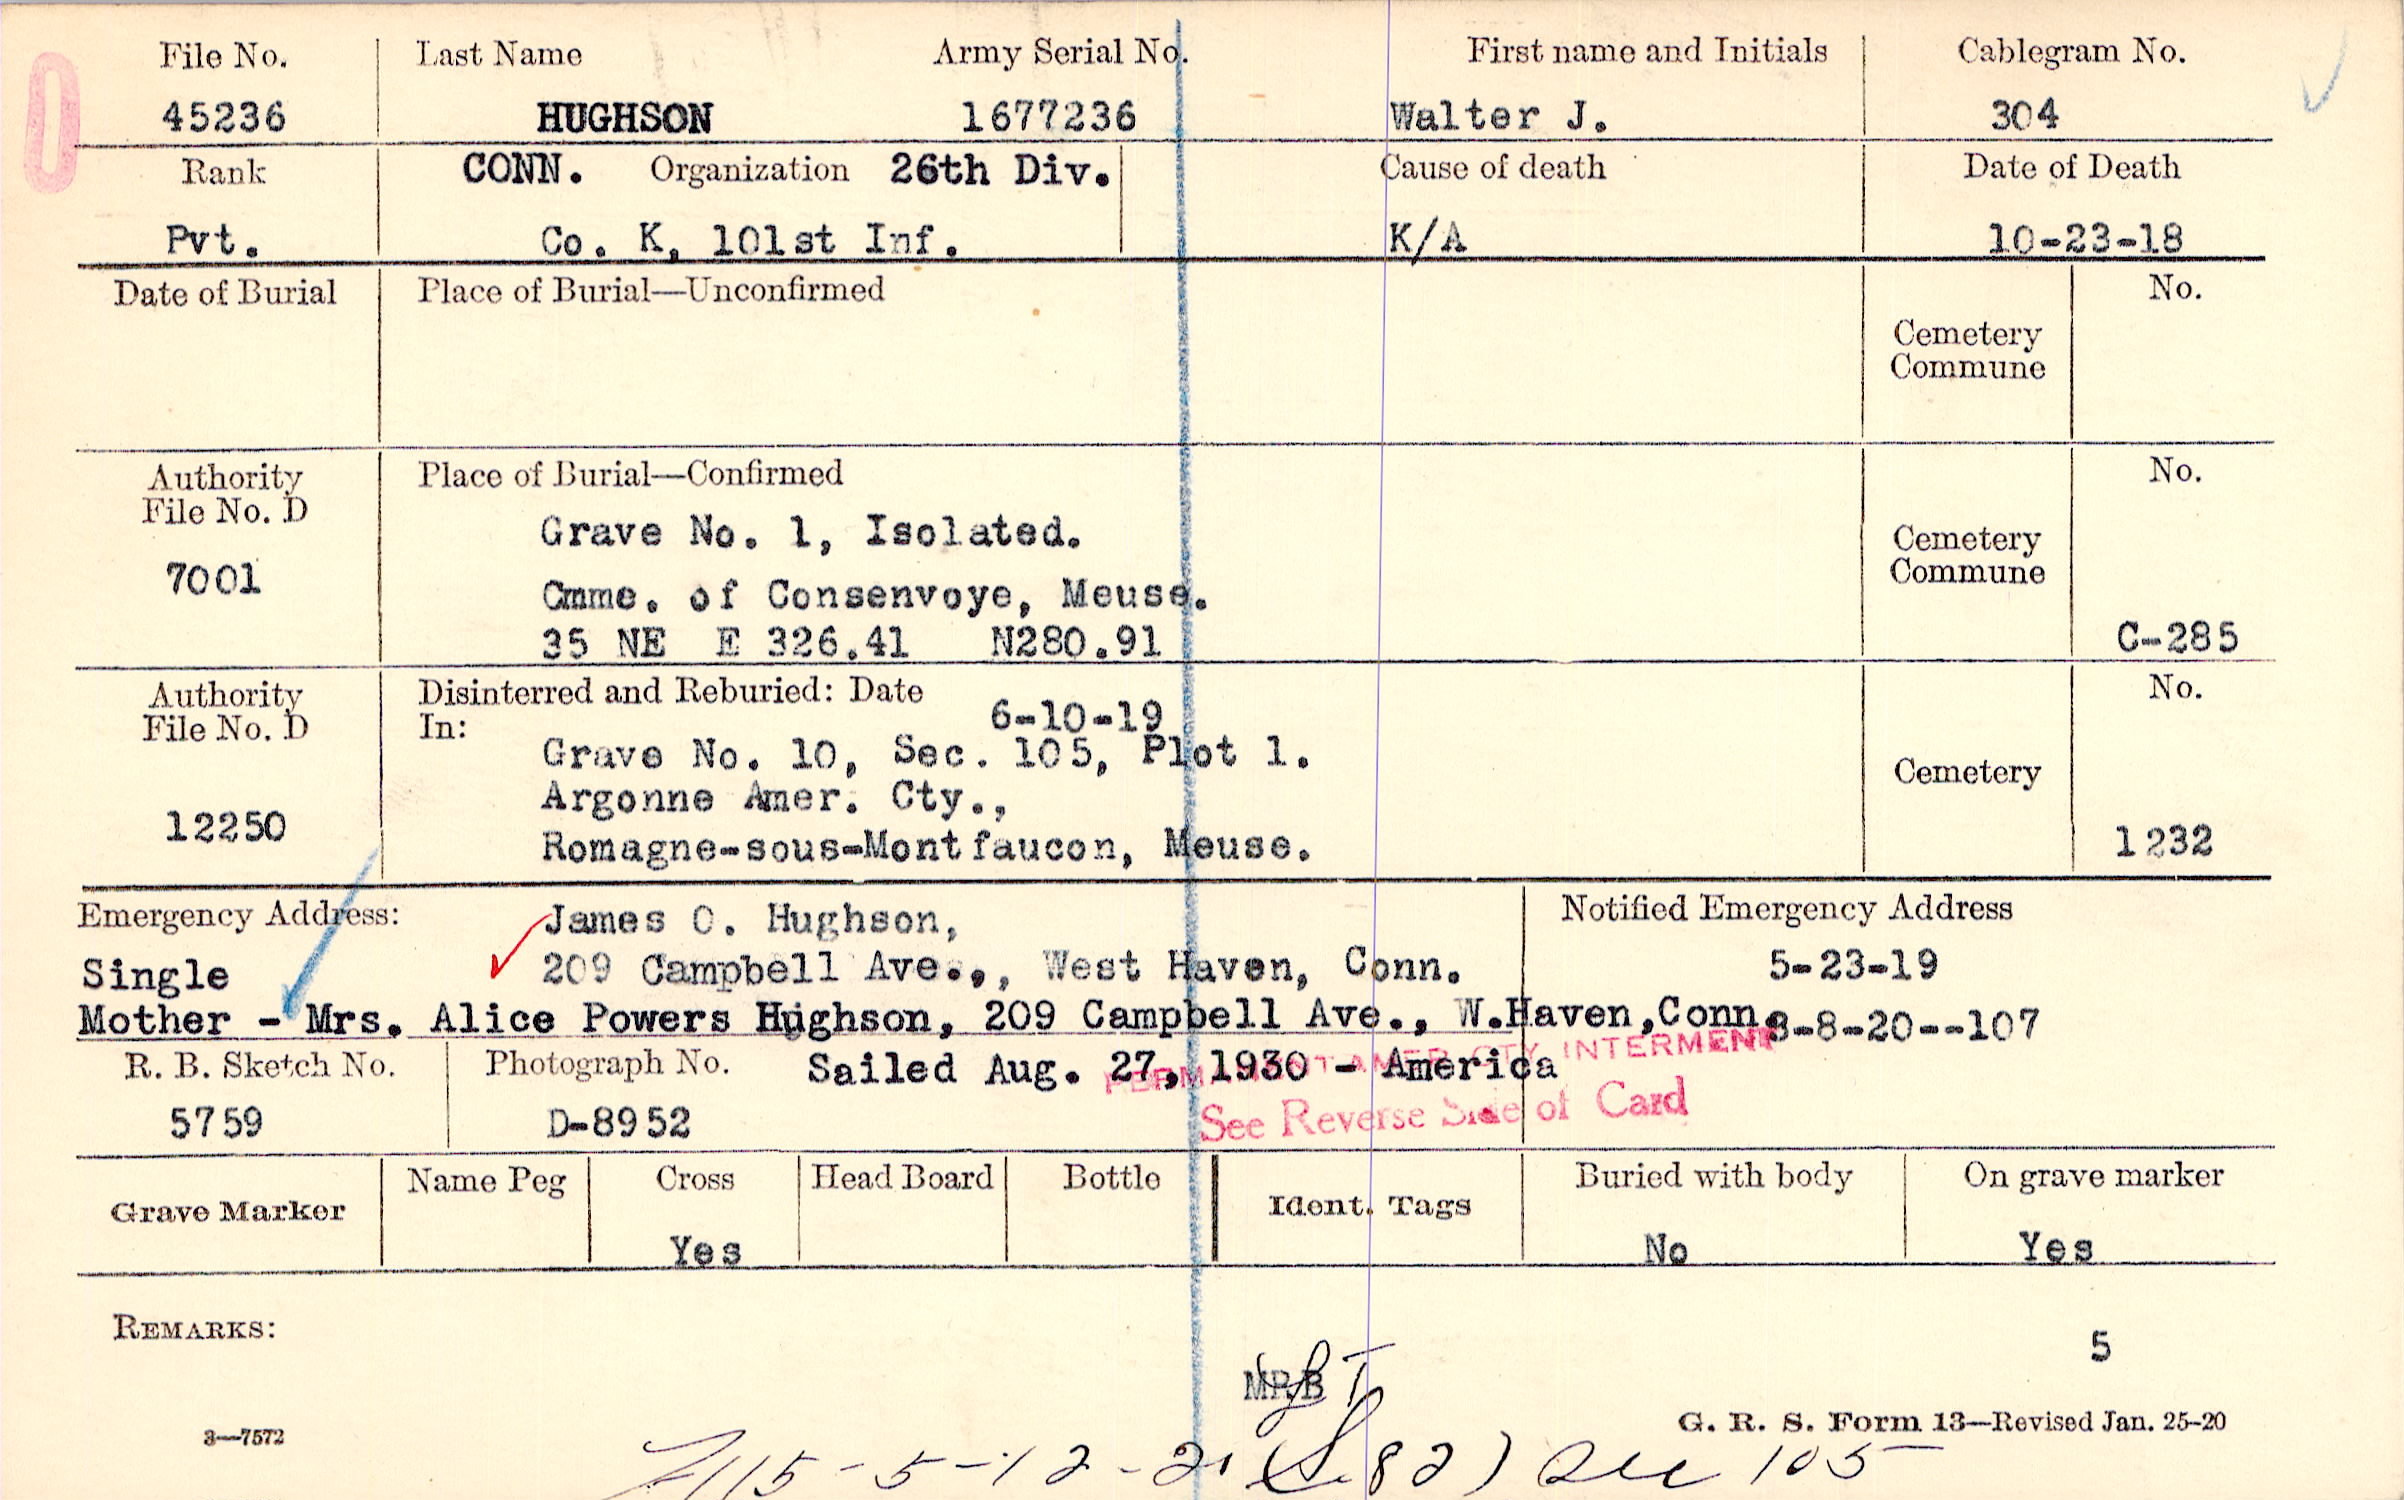 File No. Last Name Army Serial No. First name and Initials Cablegram No.
45236 HUGHSON 1677236 Walter J. 304
Rank CONN. Organization 26th Div. Cause of death Date of Death
Pvt. Co. K, 101st Inf. K/A 10-23-18
Date of Burial Place of Burial—Unconfirmed No.
Cemetery
Commune
Authority Place of Burial—Confirmed No.
File No. D
Grave No. 1, Isolated.
Cemetery
Commune
7001
Cmme. of Consenvoye, Meuse.
35 NE E 326.41 N280.91 C-285
Authority Disinterred and Reburied: Date No.
File No. D In: 6-10-19
Grave No. 10, Sec. 105, Plot 1.
Cemetery
Argonne Amer. Cty.,
12250
Romagne-sous-Montfaucon, Meuse. 1232
Emergency Address: James O. Hughson, Notified Emergency Address
Single 209 Campbell Ave.,, West Haven, Conn. 5-23-19
Mother - Mrs. Alice Powers Hughson, 209 Campbell Ave., W.Haven,Conn. 8-8-20--107
PERMANENT AMER CTY INTERMENT
R. B. Sketch No. Photograph No. Sailed Aug. 27, 1930 - America
See Reverse Side of Card
5759 D-8952
Grave Marker Name Peg Cross Head Board Bottle Ident. Tags Buried with body On grave marker
Yes No Yes
REMARKS:
5
MPB
3—7572 G. R. S. Form 13—Revised Jan. 25-20
115-5-12-21 (S. 82) Sec 105